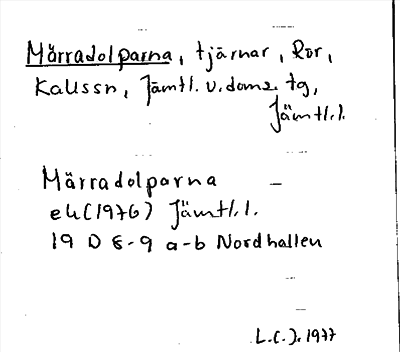 Märradolparna, tjärnar, Rör,
Kallssn, Jämtl. v. doms. tg,
Jämtl.l.
Märradolparna —
ek (1976) Jämtl.l.
19 D 8-9 a-b Nordhallen
L.C.J. 1977